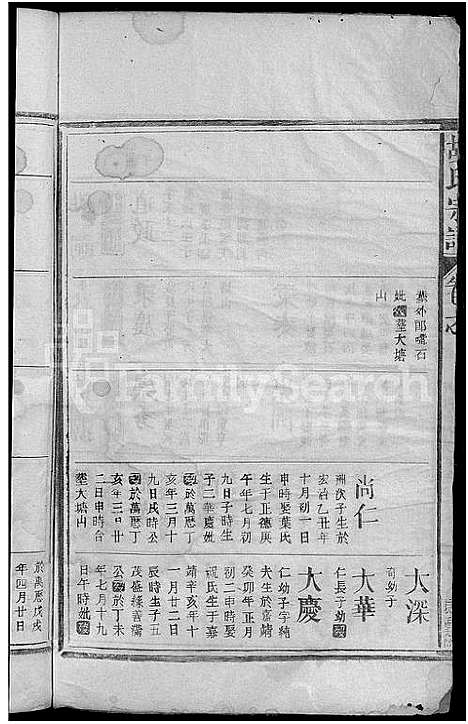 氏宗譜
葬外郎嘴石
山
妣歿塋大塘
尚仁
洲次子生於
宏治乙丑年
十月初一日
申時娶葉氏
生于正德庚
午年七月初
九日子時生
子二華慶妣
歿於萬歷丁
亥年三月十
九日戌時公
歿於萬歷丁
亥年三月廿
二日申時合
塋大塘山
大深
奇幼子
大華
仁長子幼歿
大慶
仁幼子字純
夫生於嘉靖
癸卯年正月
初二申時娶
氏生于嘉
靖辛亥年十
一月廿二日
辰時生子五
茂盛緣喜滿
公歿於丁未
年七月十九
日午時妣歿
於萬歷戊戌
年四月廿日
FamilySearch